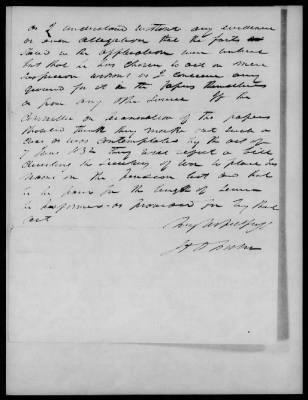 as I understand without any evidence
or even allegation that the facts as
stated in the application were untrue
but that he has chosen to act on mere
suspicion without as I conceive any
ground for it in the papers themselves
or from any other source If the
Committee on examination of the papers
should think they make out such a
case as was contemplated by the act of
7 June 1832 they will report a bill
directing the Secretary of War to place his
name on the Pension list and that
he be paid for the length of service
he performed as provision in by that
act
Very Respectfully